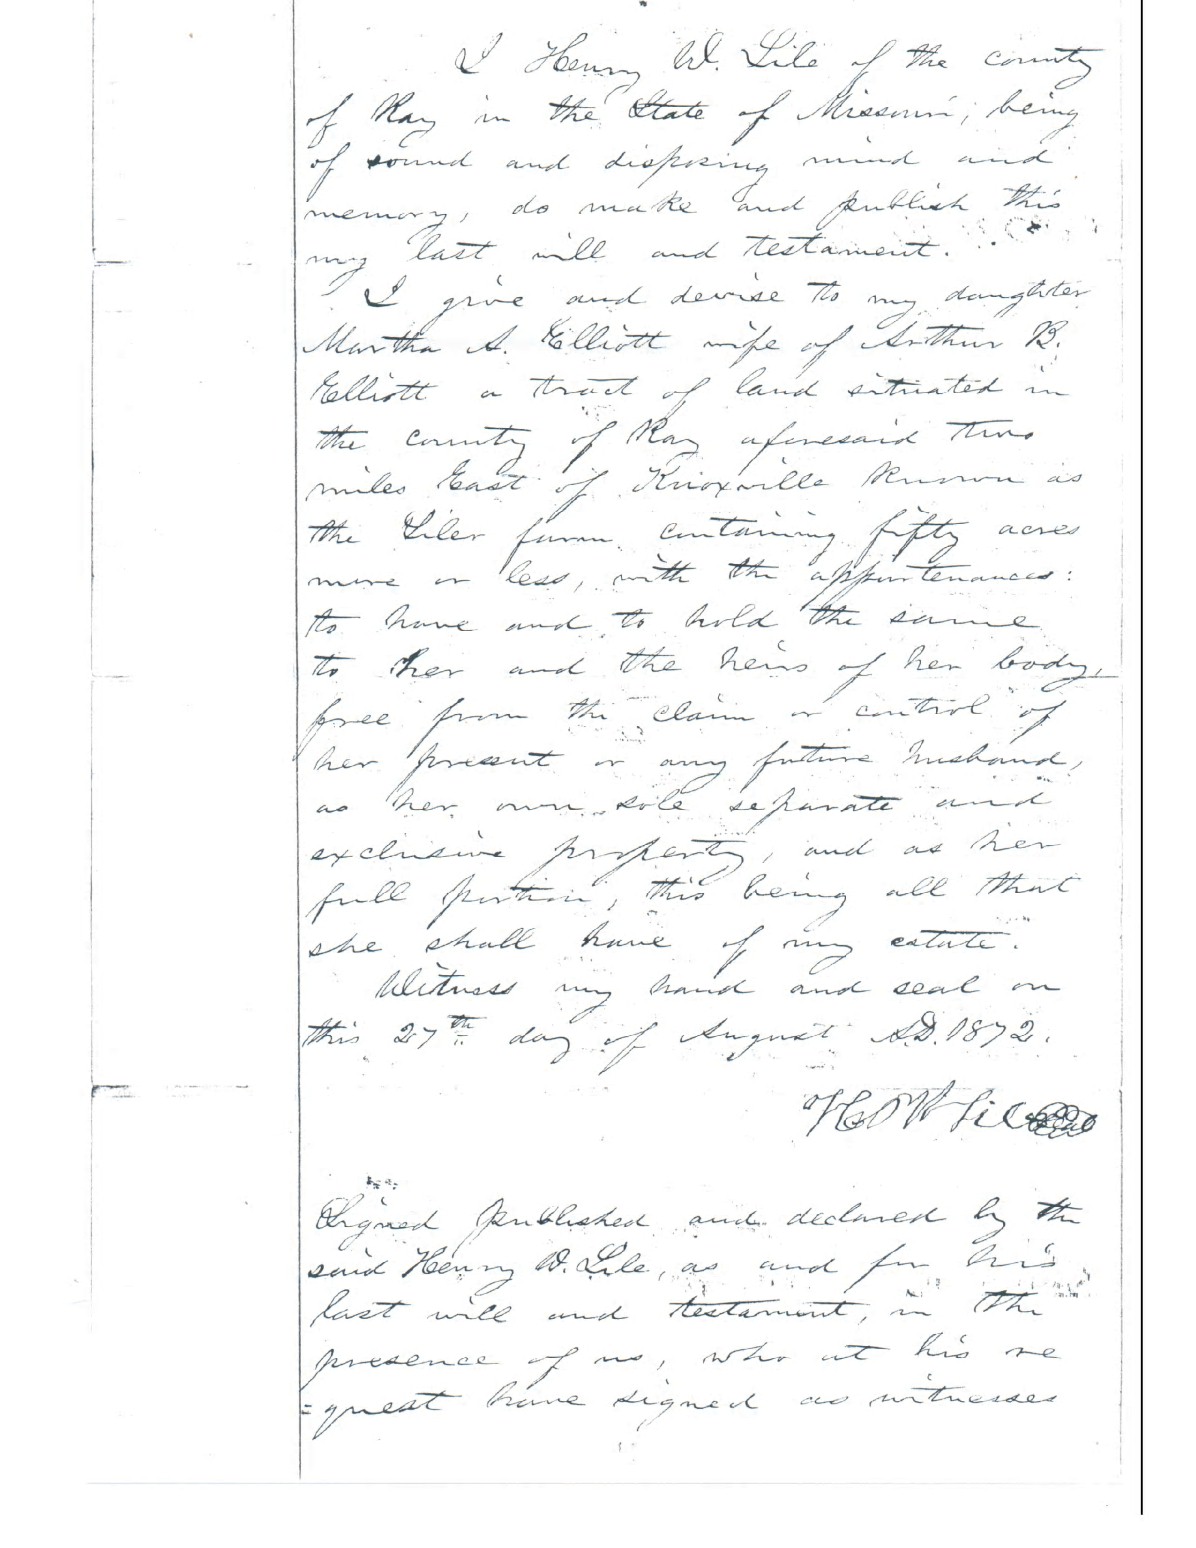 I Henry W. Lile of the county
of Ray in the State of Missouri, being
of sound and disposing mind and
memory, do make and publish this
my last will and testament.
I give and devise to my daughter
Martha A. Elliott wife of Arthur B.
Elliott a tract of land situated in
the county of Ray aforesaid two
miles East of Knoxville known as
the Liler farm containing fifty acres
more or less, with the appurtenances:
to have and to hold the same
to her and the heirs of her body,
free from the claim or control of
her present or any future husband,
as her own sole separate and
exclusive property, and as her
full portion, this being all that
she shall have of my estate.
Witness my hand and seal on
this 27th day of August A.D. 1872.
H W Lile Seal
Signed published and declared by the
said Henry W. Lile, as and for his
last will and testament, in the
presence of us, who at his re
=quest have signed as witnesses